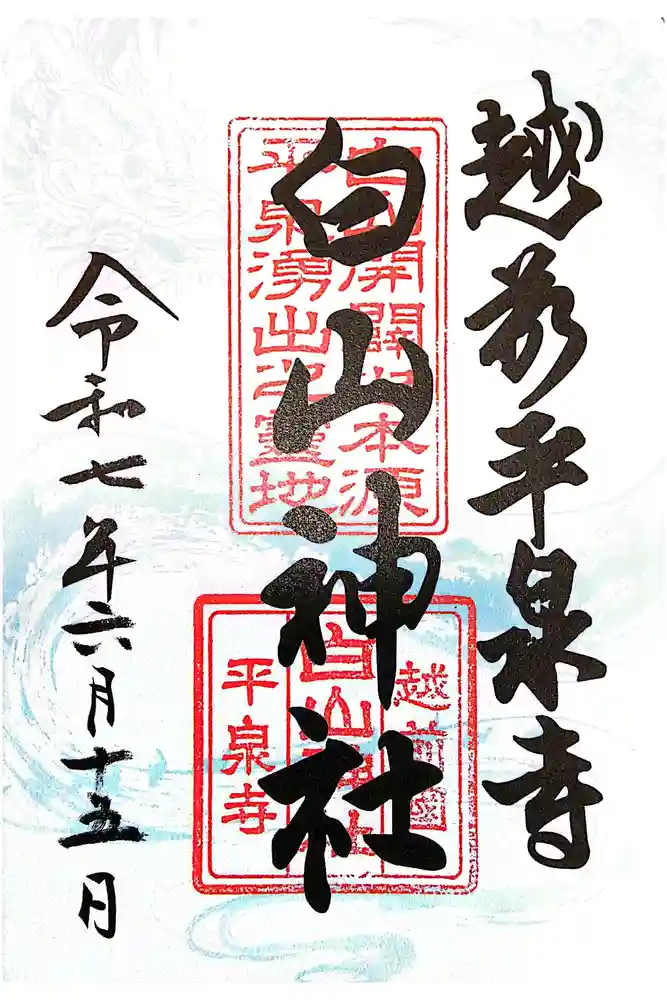 越前平泉寺
白山神社
令和七年六月十五日
平泉湧出之靈地
越前國
白山神社
平泉寺